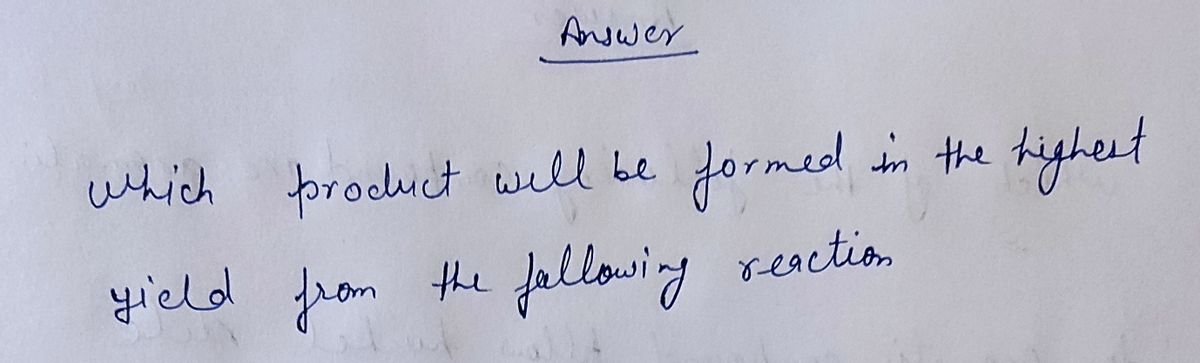 Answer
which product will be formed in the highest
yield from the following reaction